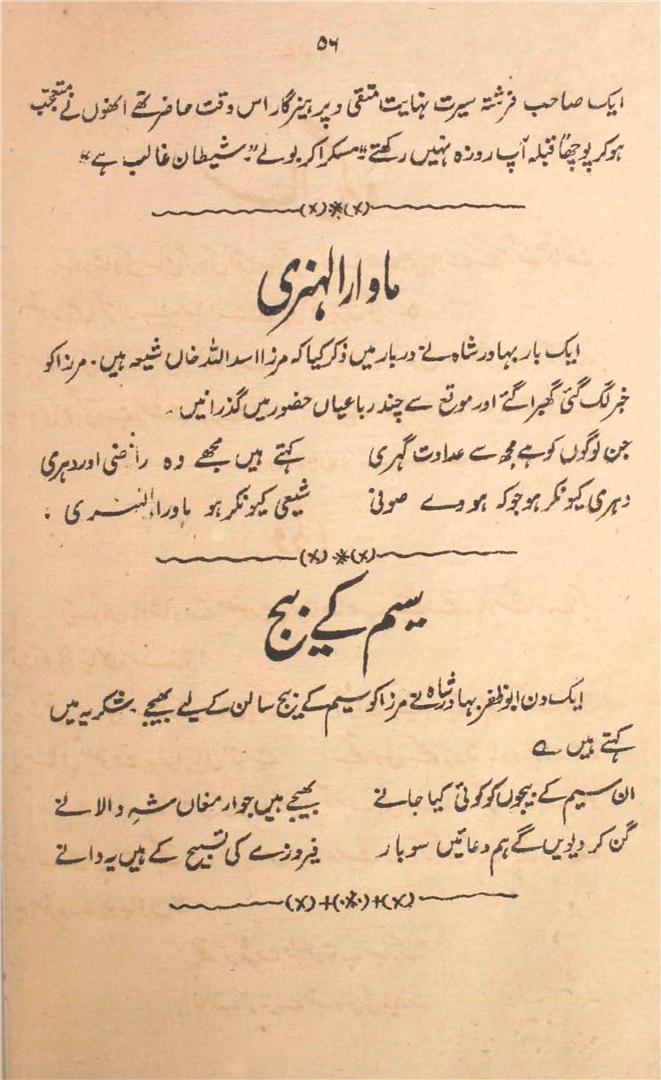 ۵۶
ایک صاحب فرشتہ سیرت نہایت متقی و پرہیزگار اس وقت حاضر تھے انھوں نے متعجب
ہو کر پوچھا قبلہ آپ روزہ نہیں رکھتے" مسکرا کر بولے "شیطان غالب ہے"
ماوارالنہری
ایک بار بہادر شاہ نے دربار میں ذکر کیا کہ مرزا اسد اللہ خاں شیعہ ہیں۔ مرزا کو
خبر لگ گئی گھبرا گئے اور موقع سے چند رباعیاں حضور میں گذرانیں۔
جن لوگوں کو ہے مجھ سے عداوت گہری کہتے ہیں مجھے وہ رافضی اور دہری
دہری کیونکر ہو جو کہ ہووے صوفی شیعی کیونکر ہو ماوراء النہری ۔
سیم کے بیج
ایک دن ابو ظفر بہادر شاہ نے مرزا کو سیم کے بیج سالن کے لیے بھیجے۔ شکریہ میں
کہتے ہیں ؎
ان سیم کے بیجوں کو کوئی کیا جانے بھیجے ہیں جو ارمغاں شہِ والا نے
گن کر دیویں گے ہم دعائیں سو بار فیروزے کی تسبیح کے ہیں یہ دانے